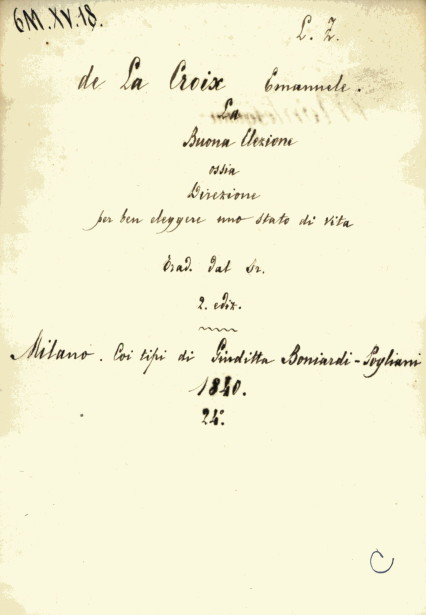 6M.XV.18.
L. Z.
de La Croix Emanuele.
La
Buona Elezione
ossia
Direzione
per ben eleggere uno stato di vita
Trad. dal Fr.
2. ediz.
Milano. Coi tipi di Giuditta Boniardi-Pogliani
1840.
24°.
C